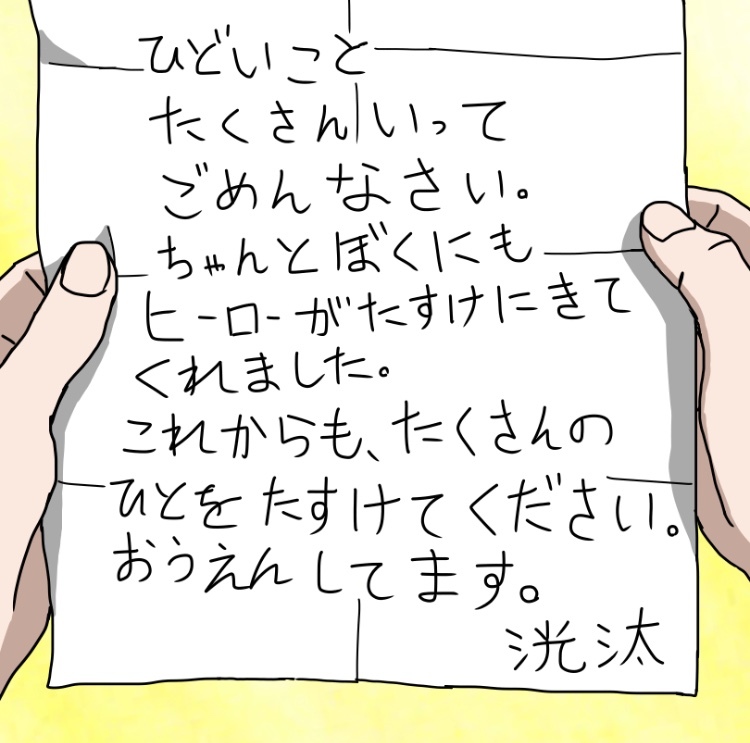 ひどいこと
たくさんいって
ごめんなさい。
ちゃんとぼくにも
ヒーローがたすけにきて
くれました。
これからも、たくさんの
ひとをたすけてください。
おうえんしてます。
洸汰